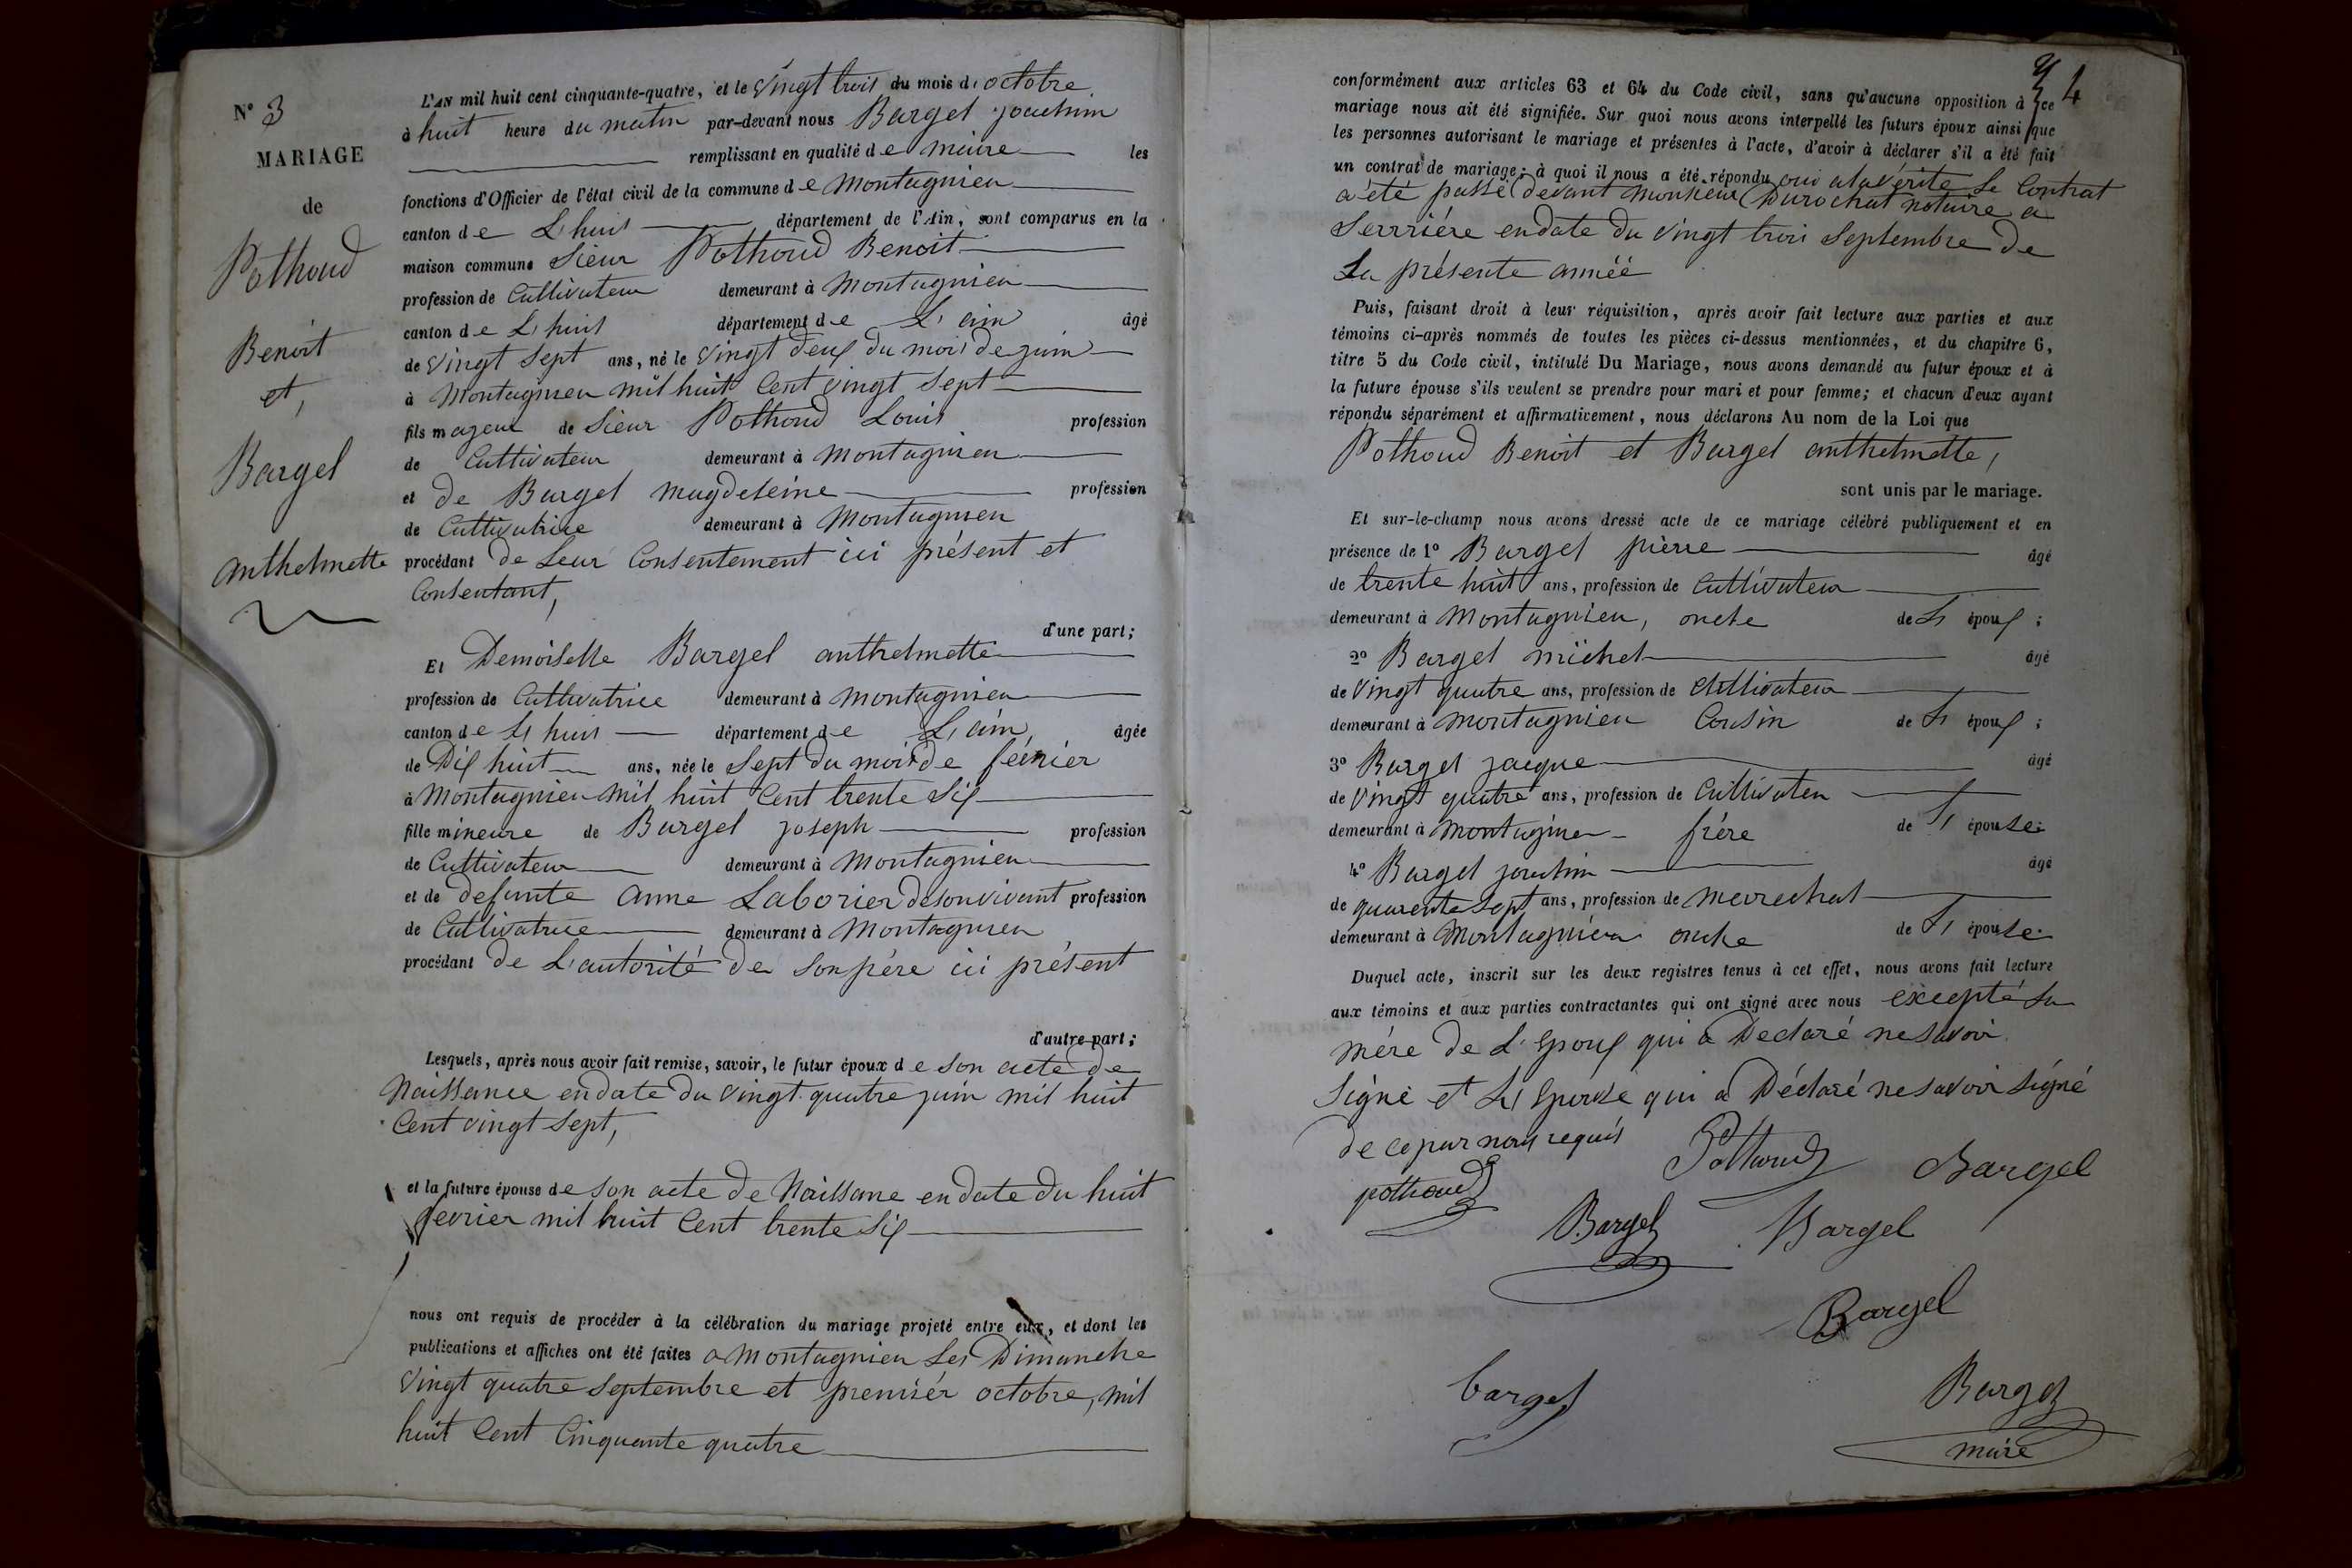 N° 3
MARIAGE
de
Pothoud
Benoit
et,
Bargel
anthelmette
L'AN mil huit cent cinquante-quatre, et le vingt trois du mois d'octobre
à huit heure du matin par-devant nous Bargel joachim
remplissant en qualité de maire les
fonctions d'Officier de l'état civil de la commune de montagnieu
canton de L'huis département de l'Ain, sont comparus en la
maison commune Sieur Pothoud Benoit
profession de Cultivateur demeurant à montagnieu
canton de L'huis département de L'ain âgé
de vingt sept ans, né le vingt deux du mois de juin
à Montagnieu mil huit Cent vingt sept
fils majeur de Sieur Pothoud Louis profession
de Cultivateur demeurant à montagnieu
et de Bargel magdeleine profession
de Cultivatrice demeurant à Montagnieu
procédant de Leur Consentement ici présent et
Consentant,
d'une part;
Et Demoiselle Bargel anthelmette
profession de Cultivatrice demeurant à montagnieu
canton de L'huis département de L'ain, âgée
de Dix huit ans, née le Sept du mois de février
à Montagnieu mil huit Cent trente Six
fille mineure de Bargel joseph profession
de Cultivateur demeurant à Montagnieu
et de defunte anne Laborier de son vivant profession
de Cultivatrice demeurant à Montagnieu
procédant de L'autorité de son père ici présent
d'autre part;
Lesquels, après nous avoir fait remise, savoir, le futur époux de son acte de
Naissance en date du vingt quatre juin mil huit
Cent vingt Sept,
et la future épouse de son acte de Naissane en date du huit
fevrier mil huit Cent trente Six
nous ont requis de procéder à la célébration du mariage projeté entre eux, et dont les
publications et affiches ont été faites a Montagnieu Les Dimanche
vingt quatre Septembre et premiér octobre, mil
huit Cent Cinquante quatre
4
conformément aux articles 63 et 64 du Code civil, sans qu'aucune opposition à ce
mariage nous ait été signifiée. Sur quoi nous avons interpellé les futurs époux ainsi que
les personnes autorisant le mariage et présentes à l'acte, d'avoir à déclarer s'il a été fait
un contrat de mariage; à quoi il nous a été répondu oui a la vérité Le Contrat
a été passé devant monsieur Durochat notaire a
Serriére en date du vingt trois Septembre de
La présente annéé
Puis, faisant droit à leur réquisition, après avoir fait lecture aux parties et aux
témoins ci-après nommés de toutes les pièces ci-dessus mentionnées, et du chapitre 6,
titre 5 du Code civil, intitulé Du Mariage, nous avons demandé au futur époux et à
la future épouse s'ils veulent se prendre pour mari et pour femme; et chacun d'eux ayant
répondu séparément et affirmativement, nous déclarons Au nom de la Loi que
Pothoud Benoit et Bargel anthelmette,
sont unis par le mariage.
Et sur-le-champ nous avons dressé acte de ce mariage célébré publiquement et en
présence de 1° Bargel pièrre âgé
de trente huit ans, profession de Cultivateur
demeurant à Montagnieu, oncle de L' époux;
2° Bargel michel âgé
de vingt quatre ans, profession de Cultivateur
demeurant à montagnieu Cousin de L' époux;
3° Bargel jacque âgé
de vingt quatre ans, profession de Cultivateu
demeurant à montagnieu frére de L' épouse;
4° Bargel joachim âgé
de quarente Sept ans, profession de marechal
demeurant à Montagnieu oncle de L' épouse
Duquel acte, inscrit sur les deux registres tenus à cet effet, nous avons fait lecture
aux témoins et aux parties contractantes qui ont signé avec nous excepté La
mére de L'époux qui a Declaré ne savoir
Signé et L'épouse qui a Déclaré ne savoir Signé
de ce par nous requis
Pothoud Bargel
pothoud
Bargel Bargel
Bargel
bargel Bargel
maire